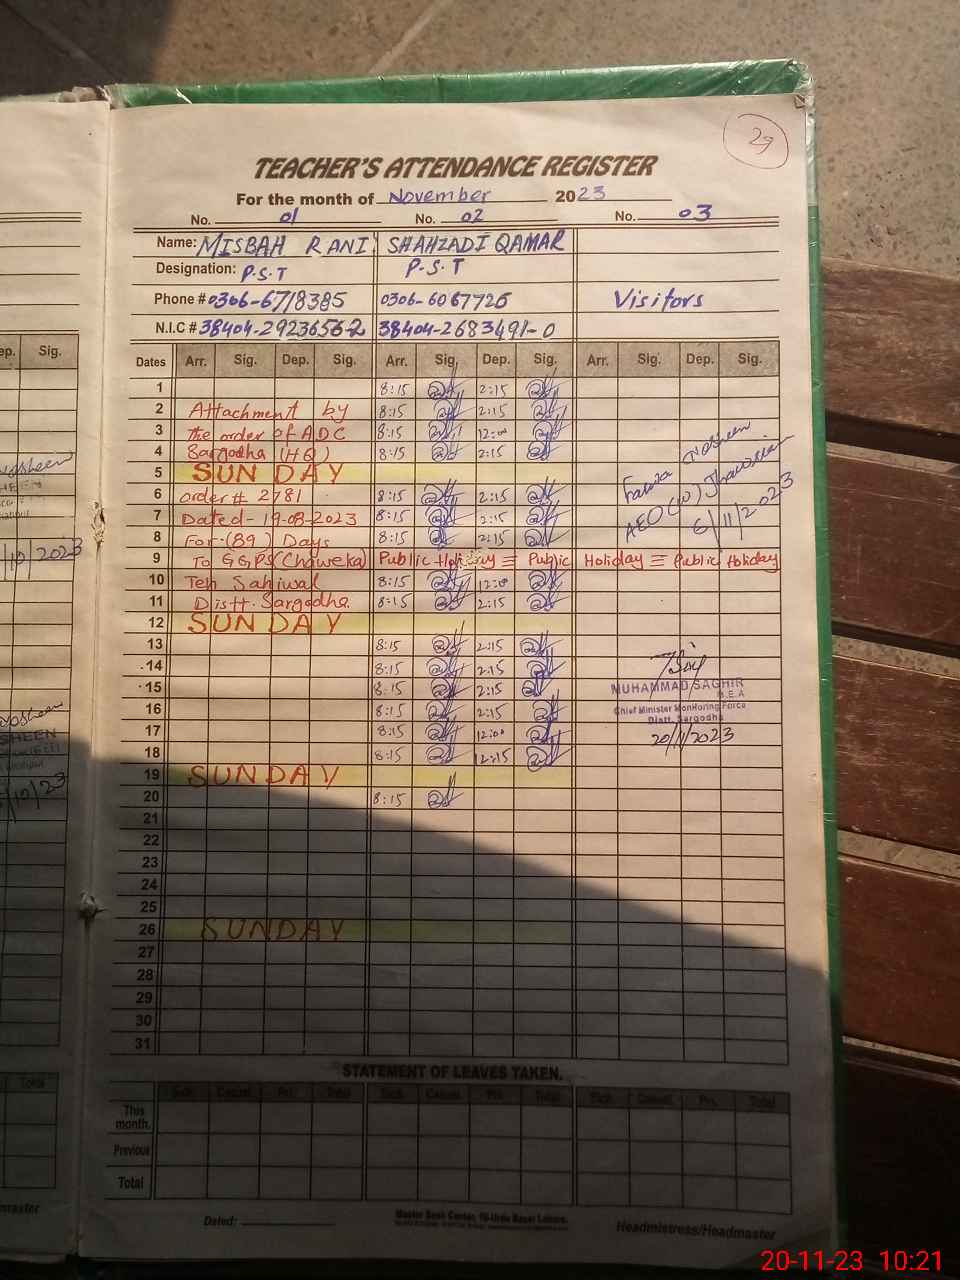 29
TEACHER'S ATTENDANCE REGISTER
For the month of November 2023
No. 01 No. 02 No. 03
Name: MISBAH RANI SHAHZADI QAMAR
Designation: P.S.T P.S.T
Phone # 0306-6718385 0306-6067726 Visitors
N.I.C # 38404-2683491-0
Dates Arr. Sig. Dep. Sig. Arr. Sig. Dep. Sig. Arr. Sig. Dep. Sig.
1 8:15 2:15
2 Attachment by 8:15 2:15
3 the order of ADC 8:15 12:00
4 Sargodha (HQ) 8:15 2:15
5 SUNDAY
6 order # 2781 8:15 2:15
7 Dated-19-08-2023 8:15 2:15
8 For (89) Days 8:15 2:15
9 To GGPS (Chaweka) Public Holiday = Public Holiday = Public Holiday
10 Teh Sahiwal 8:15 12:00
11 Distt. Sargodha. 8:15 2:15
12 SUNDAY
13 8:15 2:15
14 8:15 2:15
15 8:15 2:15
16 8:15 2:15
17 8:15 12:00
18 8:15 12:15
19 SUNDAY
20 8:15
21
22
23
24
25
26 SUNDAY
27
28
29
30
31
Nosheen
AEO (W)
6/11/2023
MUHAMMAD SAGHIR
M.E.A
Chief Minister Monitoring Force
Distt. Sargodha
20/11/2023
STATEMENT OF LEAVES TAKEN.
Sick Casual Pri. Total Sick Casual Pri. Total Sick Casual Pri. Total
This month.
Previous
Total
Dated:
Master Book Center, 16-Urdu Bazar Lahore.
Headmistress/Headmaster
ep. Sig.
10/2023
10/23
Total
master
20-11-23 10:21